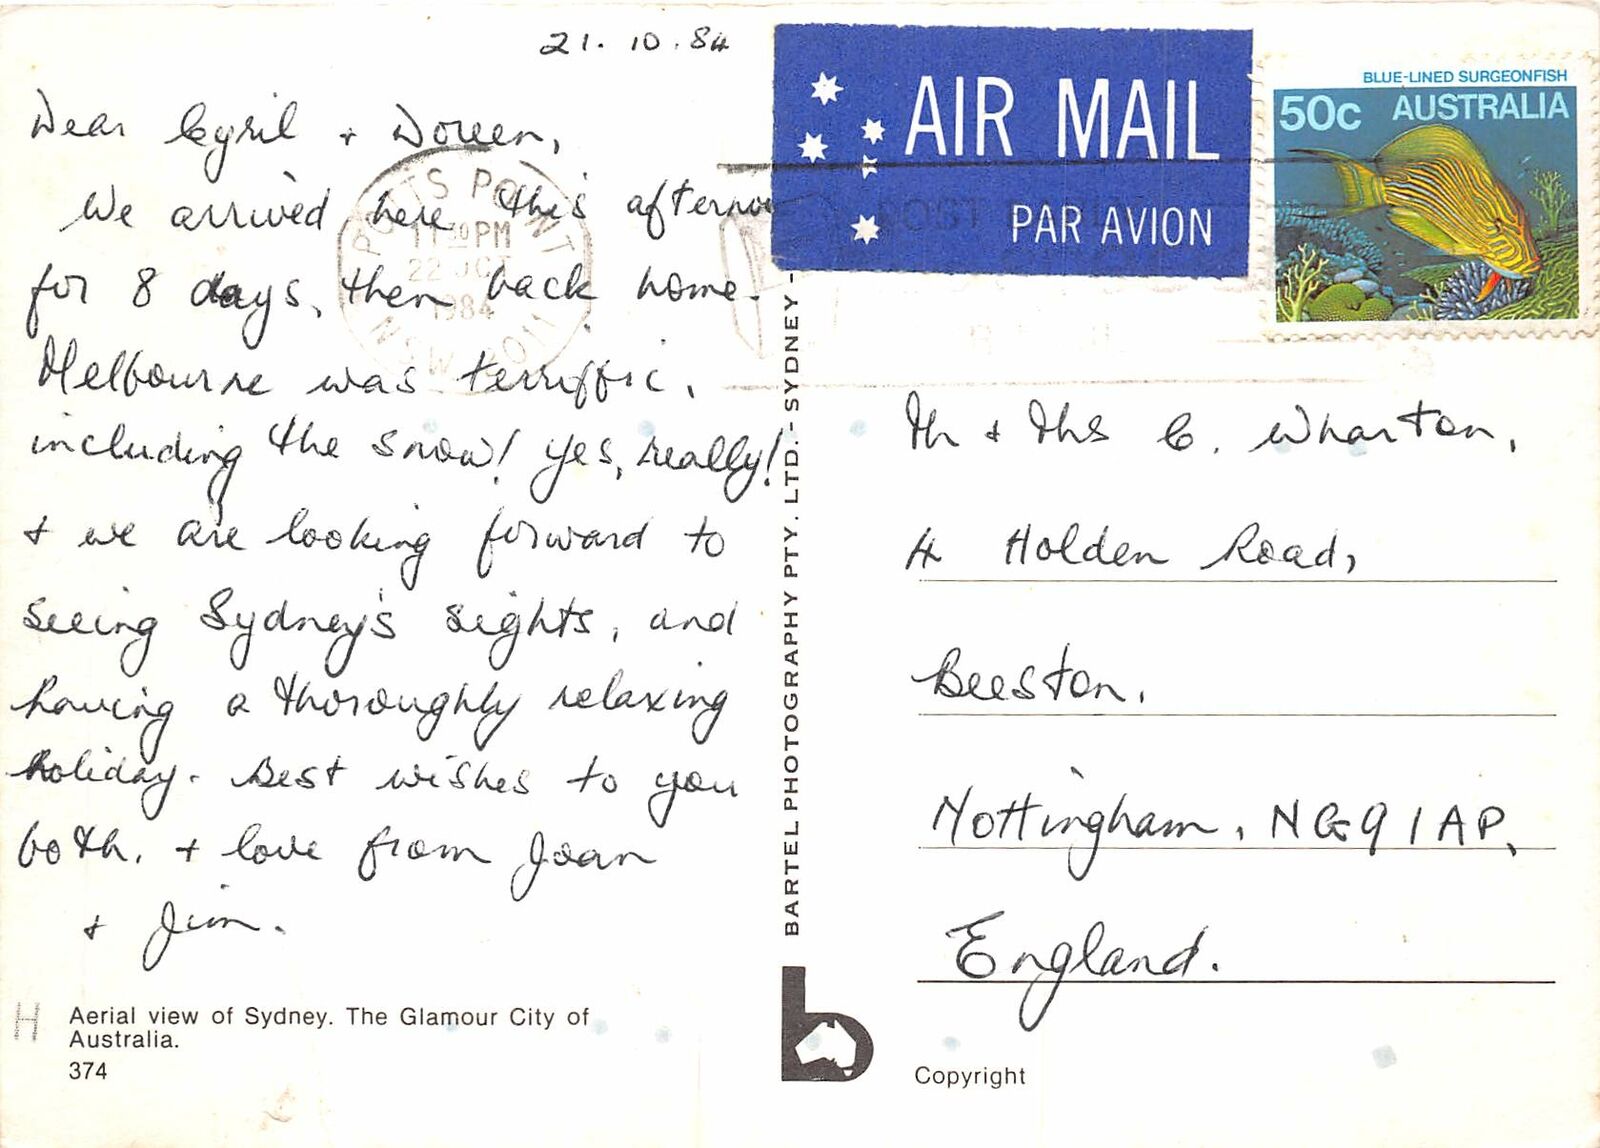 21.10.84
Dear Cyril + Doreen,
We arrived here this afternoo
for 8 days, then back home.
Melbourne was terriffic,
including the snow! Yes, really!
+ we are looking forward to
seeing Sydney's sights, and
having a thoroughly relaxing
holiday. Best wishes to you
both, + love from Joan
+ Jim.
H
Aerial view of Sydney. The Glamour City of
Australia.
374
POTTS POINT
11 30 PM
22 OCT
1984
NSW 2011
BARTEL PHOTOGRAPHY PTY. LTD. - SYDNEY -
b
AIR MAIL
POST
PAR AVION
BLUE-LINED SURGEONFISH
50c AUSTRALIA
Mr + Mrs C. Wharton,
4 Holden Road,
Beeston,
Nottingham, NG9 1AP,
England.
Copyright